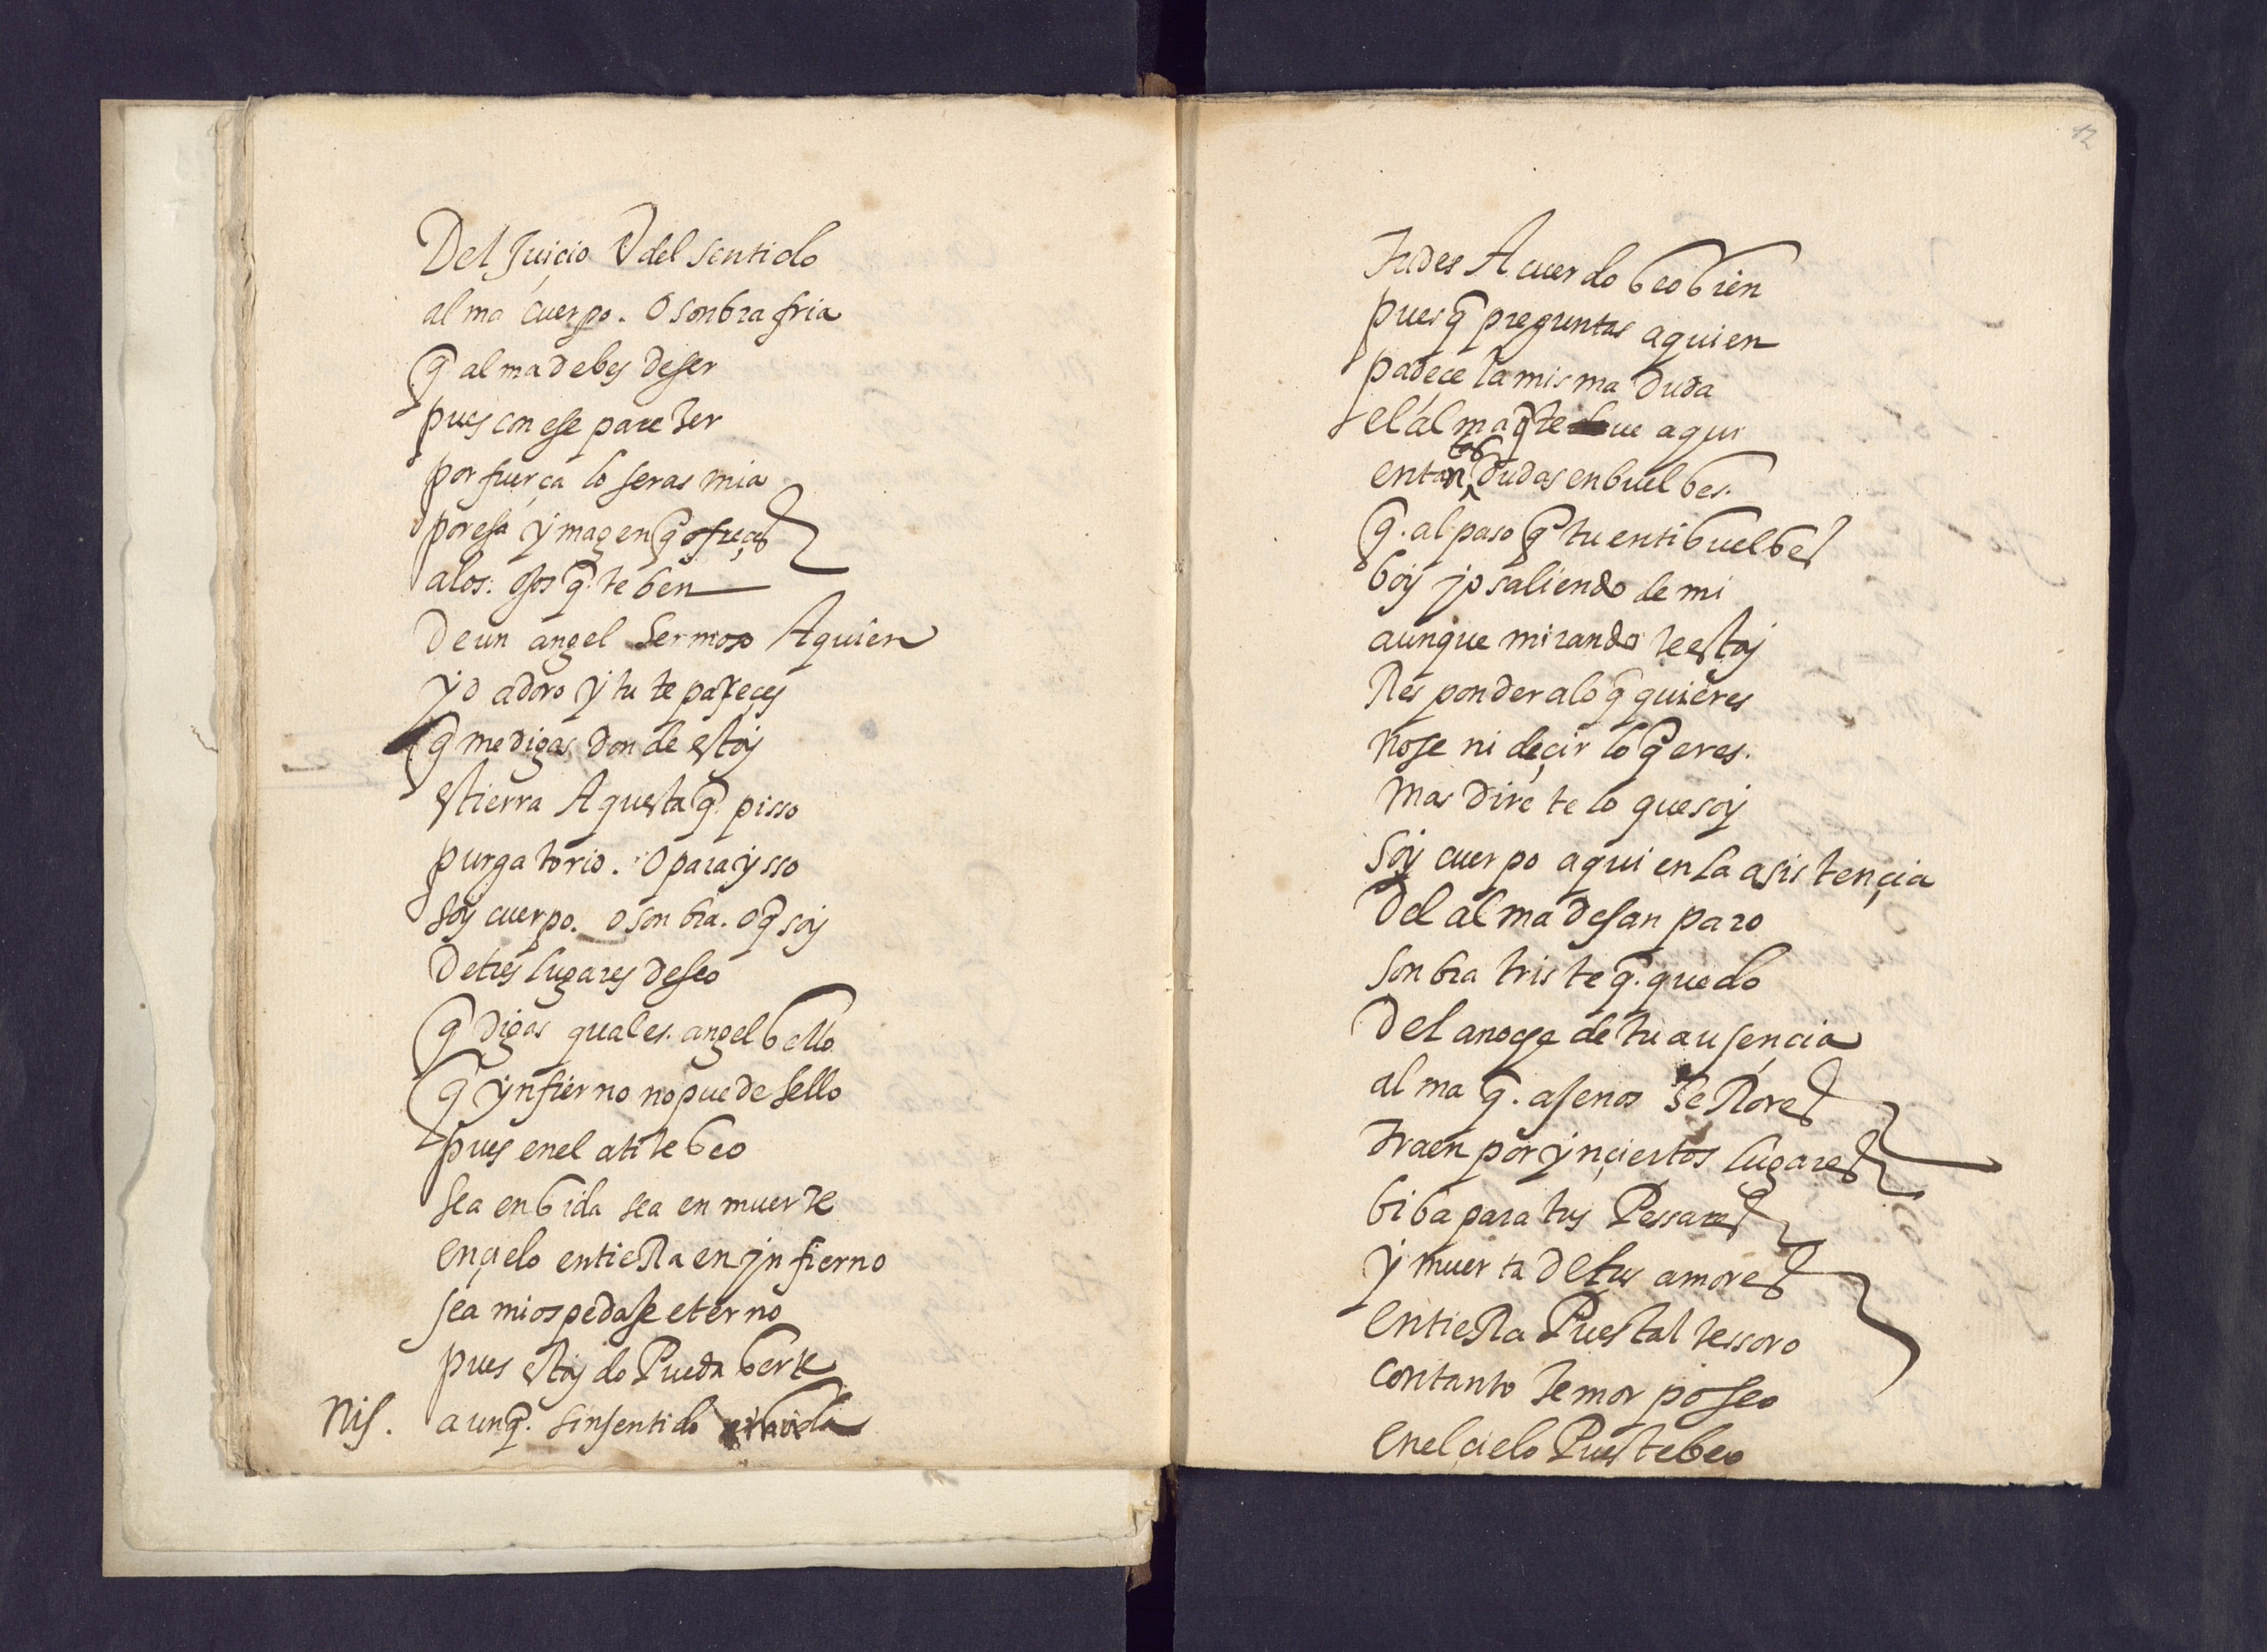 Del Juiçio V del sentido
alma cuerpo. O sonbra fria
q̃ alma debes de ser
pues con ese pareser
por fuerça lo seras mia
por esa ymagen q̃ ofreçes
a los. ojos q̃. te ben
De un angel hermoso A quien
yo adoro y tu te pareçes
q̃ me digas donde estoy
es tierra Aquesta q̃. pisso
purgatorio. O paraysso
soy cuerpo. o sonbra. o q̃ soy
De tres lugares deseo
q̃ digas qual es. angel bello
q̃ ynfierno no puede sello
pues en el a ti te beo
sea en bida sea en muerte
en çielo en tierra en jnfierno
sea mi ospedaje eterno
pues estoy do Pueda berte
Nis. aunq̃. sin sentido
12
Acuerdo beo bien
pues q̃ preguntas a quien
padeçe la misma Duda
el alma q̃ te ue aqui
en tantas Dudas enbuelbes.
q̃. al paso q̃ tu en ti buelbes
boy jo saliendo de mi
aunque mirando te estoy
Responder a lo q̃ quieres
no se ni deçir lo q̃ eres.
Mas dire te lo que soy
soy cuerpo aqui en la asistençia
Del alma desanparo
sonbra triste q̃. quedo
De la noche de tu ausençia
alma q̃. ajenos
traen por ynçiertos lugares
biba para tus Pessares
y muerta de tus amores
en tierra Pues tal tessoro
con tanto temor poseo
en el çielo Pues te beo